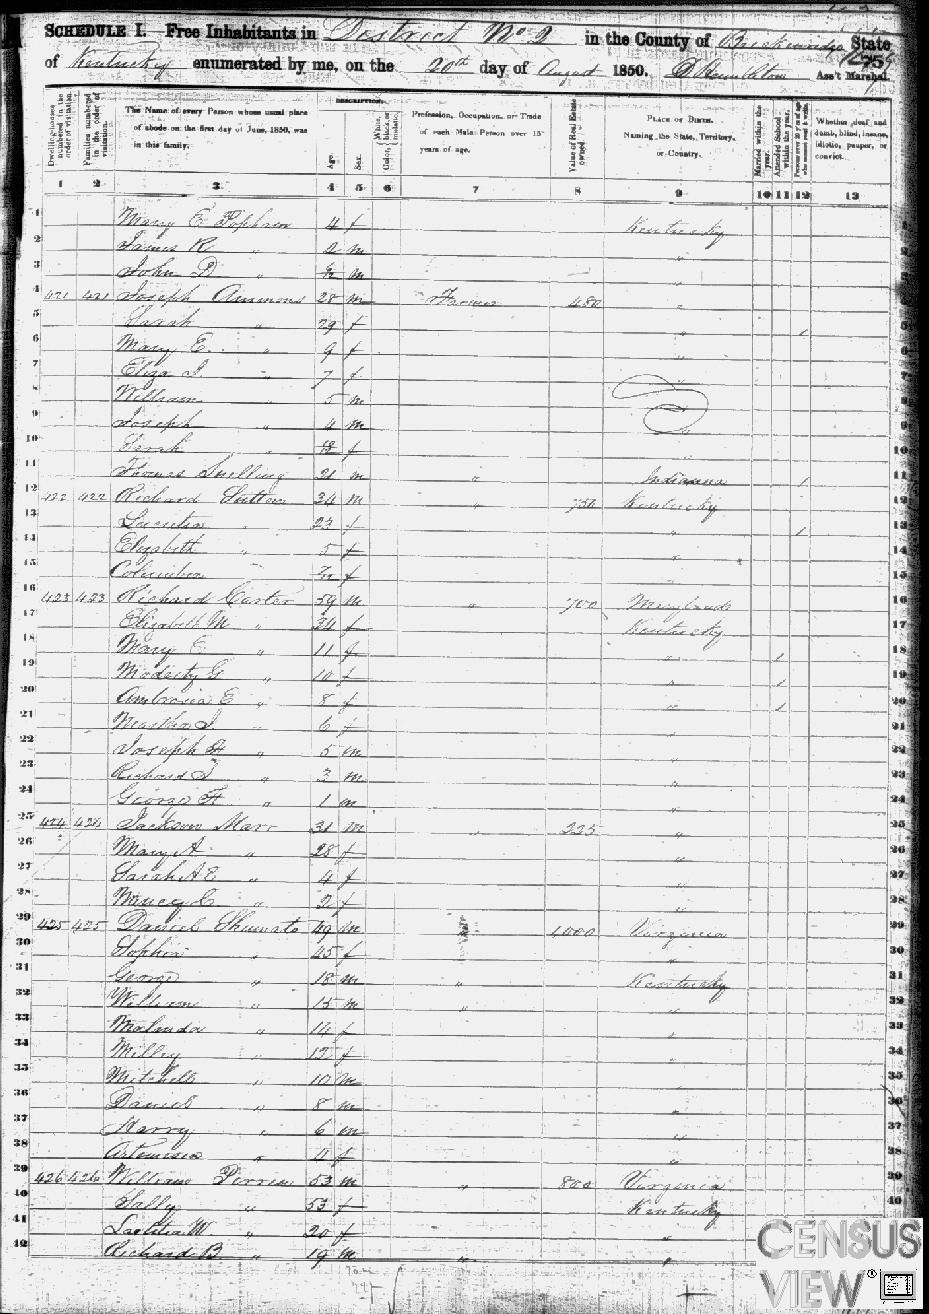 SCHEDULE I. Free Inhabitants in District No 2 in the County of Breckinridge State
of Kentucky enumerated by me, on the 20th day of August 1850. Ass't Marshal.
Dwelling-houses numbered in the order of visitation.
Families numbered in the order of visitation.
The Name of every Person whose usual place of abode on the first day of June, 1850, was in this family.
DESCRIPTION.
Age.
Sex.
Color, White, black, or mulatto.
Profession, Occupation, or Trade of each Male Person over 15 years of age.
Value of Real Estate owned.
PLACE OF BIRTH. Naming the State, Territory, or Country.
Married within the year.
Attended School within the year.
Persons over 20 y'rs of age who cannot read & write.
Whether deaf and dumb, blind, insane, idiotic, pauper, or convict.
1 2 3 4 5 6 7 8 9 10 11 12 13
1 Mary E 4 f Kentucky 1
2 James R " 2 m " 2
3 John D " m " 3
4 421 421 Joseph Ammons 28 m Farmer 480 " 4
5 Sarah " 29 f " 1 5
6 Mary E. " 9 f " 6
7 Eliza J. " 7 f " 7
8 William " 5 m " 8
9 Joseph " 4 m " 9
10 Sarah " f " 10
11 Thomas Snelling 21 m " Indianna 1 11
12 422 422 Richard Sutton 34 m " 750 Kentucky 12
13 " 23 f " 1 13
14 Elizabeth " 5 f " 14
15 Columbia " f " 15
16 423 423 Richard Carter 59 m " 700 Maryland 16
17 Elizabeth M " 34 f Kentucky 17
18 Mary E " 11 f " 1 18
19 Modesty G " 10 f " 1 19
20 Ambrosia E " 8 f " 1 20
21 Martha J " 6 f " 21
22 Joseph H " 5 m " 22
23 Richard J " 3 m " 23
24 George H " 1 m " 24
25 424 424 Jackson Marr 31 m " 225 " 25
26 Mary A " 28 f " 26
27 Sarah A E " 4 f " 27
28 Nancy C " 2 f " 28
29 425 425 Daniel Shumate 49 m " 1400 Virginia 29
30 Sophia " 45 f " 30
31 George " 18 m " Kentucky 31
32 William " 15 m " " 32
33 Malinda " 14 f " 33
34 Milley " f " 34
35 Mitchell " 10 m " 35
36 Daniel " 8 m " 36
37 Harry " 6 m " 37
38 Artemisia " f " 38
39 426 426 William Perrin 53 m " 800 Virginia 39
40 Sally " 53 f Kentucky 40
41 Laetitia W " 20 f "
42 Richard B " 19 m " "
CENSUS
VIEW®